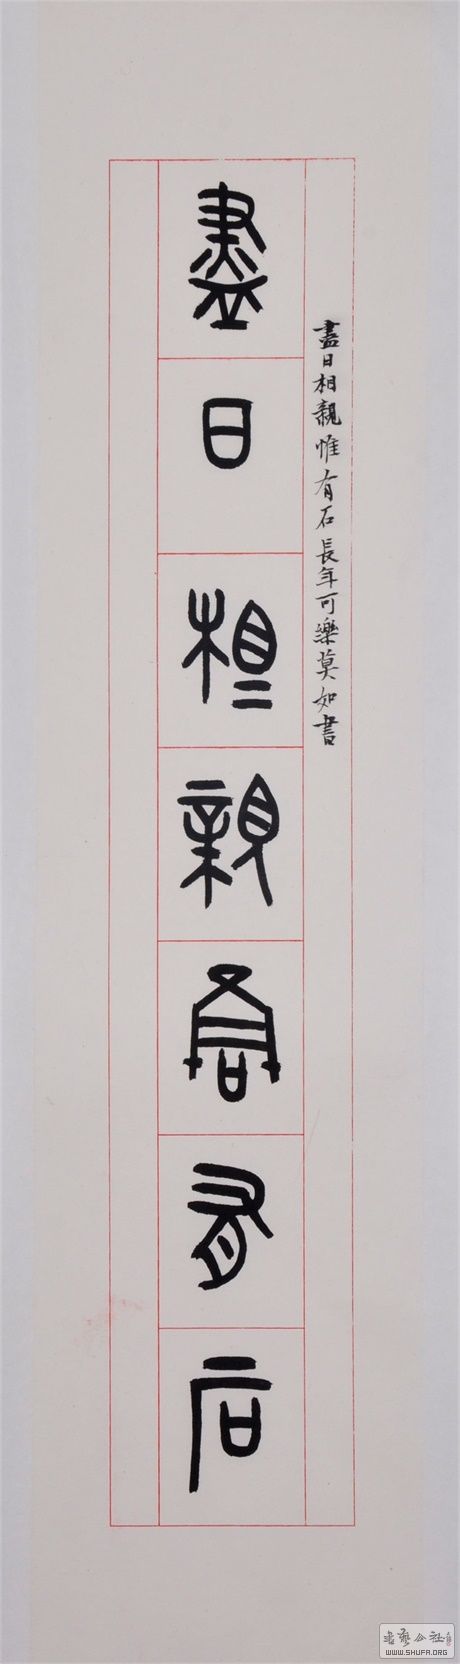 盡日相親惟有石長年可樂莫如書
盡日相親惟有石
書藝公社
WWW.SHUFA.ORG